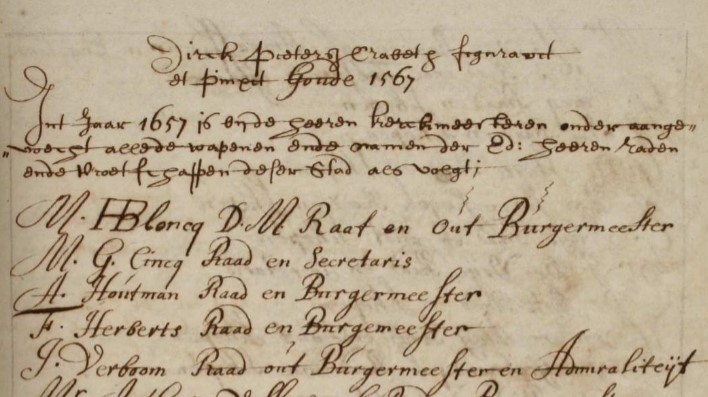 Dirck Pietersz Crabeth figuravit
et Pinxit Goude 1567
Int Jaar 1657 is bij de heeren kerckmeesteren onder aange=
=voecht alle de wapenen ende namen der Ed: heeren raden
ende vroetschappen deser Stad als volgt;
M. HBloncq D. M Raat en out Burgermeester
M. G. Cincq Raad en Secretaris
A. Houtman Raad en Burgermeester
F. Herberts Raad en Burgemeester
J. Verboom Raad out Burgermeester en Admiraliteijt